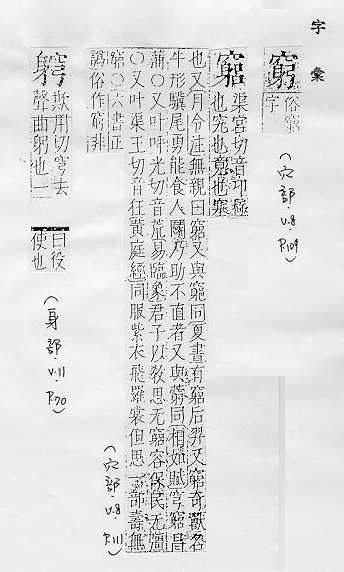 字彙
窮 俗窮
字
(穴部.V.8
P.109)
竆 渠宮切音卭極
也究也竟也塞
也又月令注無親曰窮又與竆同夏書有窮后羿又窮奇獸名
牛形驥尾勇能食人鬭乃助不直者又與藭同相如賦芎窮昌
蒲○又叶呼光切音荒易臨象君子以敎思无窮容保民无疆
○又叶渠王切音狂黃庭經同服紫衣飛羅裳但思一部壽無
窮○六書正
譌俗作窮非
(穴部.V.8
P.111)
欺用切穹去
聲曲躬也一
曰役
使也
(身部
V.11
P.70)